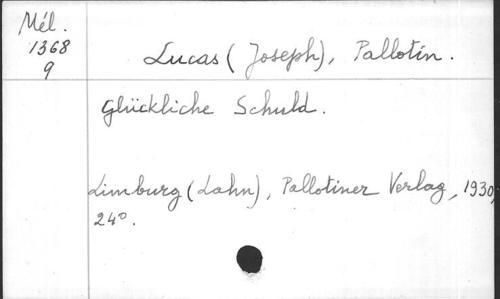 Mél.
1368
9
Lucas (Joseph), Pallotin.
Glückliche Schuld.
Limburg (Lahn), Pallotiner Verlag, 1930,
24°.